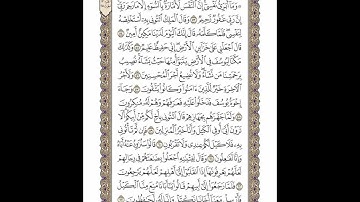 ۞ وَمَآ أُبَرِّئُ نَفْسِىٓ إِنَّ ٱلنَّفْسَ لَأَمَّارَةٌۢ بِٱلسُّوٓءِ إِلَّا مَا رَحِمَ رَبِّىٓ
إِنَّ رَبِّى غَفُورٌ رَّحِيمٌ ٥٣ وَقَالَ ٱلْمَلِكُ ٱئْتُونِى بِهِۦٓ أَسْتَخْلِصْهُ
لِنَفْسِى فَلَمَّا كَلَّمَهُۥ قَالَ إِنَّكَ ٱلْيَوْمَ لَدَيْنَا مَكِينٌ أَمِينٌ ٥٤
قَالَ ٱجْعَلْنِى عَلَىٰ خَزَآئِنِ ٱلْأَرْضِ إِنِّى حَفِيظٌ عَلِيمٌ ٥٥ وَكَذَٰلِكَ
مَكَّنَّا لِيُوسُفَ فِى ٱلْأَرْضِ يَتَبَوَّأُ مِنْهَا حَيْثُ يَشَآءُ نُصِيبُ
بِرَحْمَتِنَا مَن نَّشَآءُ وَلَا نُضِيعُ أَجْرَ ٱلْمُحْسِنِينَ ٥٦ وَلَأَجْرُ
ٱلْءَاخِرَةِ خَيْرٌ لِّلَّذِينَ ءَامَنُوا۟ وَكَانُوا۟ يَتَّقُونَ ٥٧ وَجَآءَ إِخْوَةُ
يُوسُفَ فَدَخَلُوا۟ عَلَيْهِ فَعَرَفَهُمْ وَهُمْ لَهُۥ مُنكِرُونَ ٥٨
وَلَمَّا جَهَّزَهُم بِجَهَازِهِمْ قَالَ ٱئْتُونِى بِأَخٍ لَّكُم مِّنْ أَبِيكُمْ أَلَا
تَرَوْنَ أَنِّىٓ أُوفِى ٱلْكَيْلَ وَأَنَا۠ خَيْرُ ٱلْمُنزِلِينَ ٥٩ فَإِن لَّمْ تَأْتُونِى
بِهِۦ فَلَا كَيْلَ لَكُمْ عِندِى وَلَا تَقْرَبُونِ ٦٠ قَالُوا۟ سَنُرَٰوِدُ عَنْهُ أَبَاهُ
وَإِنَّا لَفَٰعِلُونَ ٦١ وَقَالَ لِفِتْيَٰنِهِ ٱجْعَلُوا۟ بِضَٰعَتَهُمْ فِى رِحَالِهِمْ
لَعَلَّهُمْ يَعْرِفُونَهَآ إِذَا ٱنقَلَبُوٓا۟ إِلَىٰٓ أَهْلِهِمْ لَعَلَّهُمْ يَرْجِعُونَ ٦٢
فَلَمَّا رَجَعُوٓا۟ إِلَىٰٓ أَبِيهِمْ قَالُوا۟ يَٰٓأَبَانَا مُنِعَ مِنَّا ٱلْكَيْلُ
فَأَرْسِلْ مَعَنَآ أَخَانَا نَكْتَلْ وَإِنَّا لَهُۥ لَحَٰفِظُونَ ٦٣